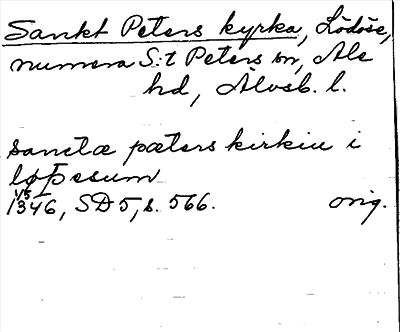 Sankt Peters kyrka, Lödöse,
numera S:t Peters sn, Ale
hd, Älvsb. l.
sanctæ pæters kirkiu i
løþesum
1/5
1346, SD 5, s. 566. orig.